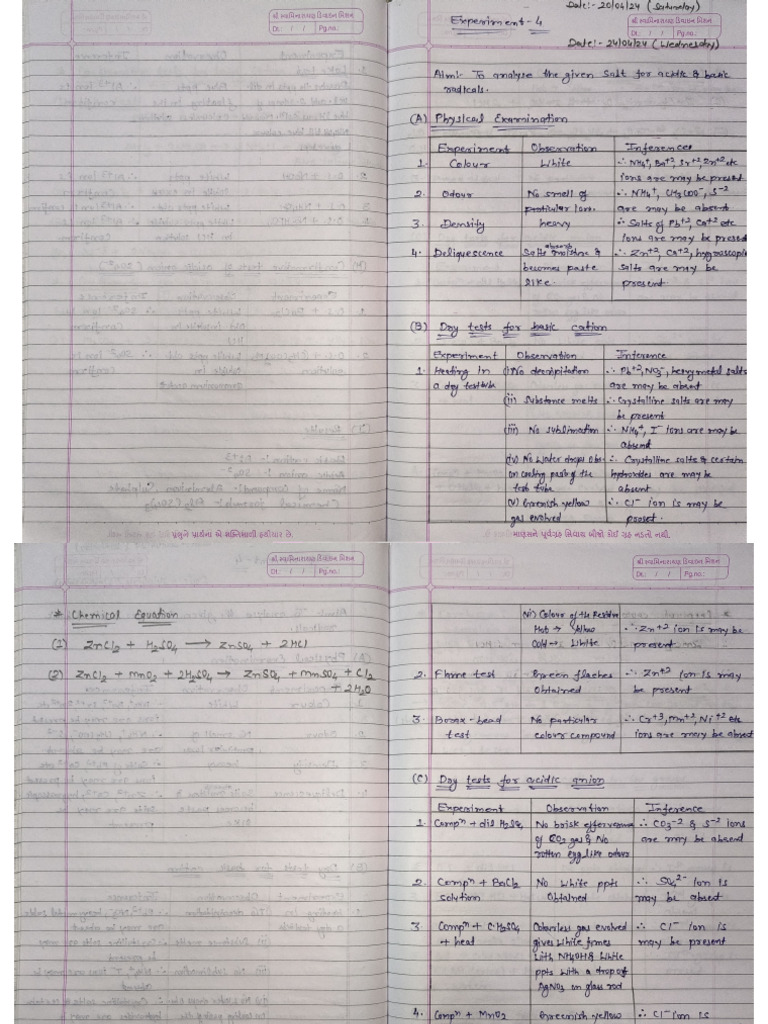 Date:- 20/04/24 (Saturday)
Experiment - 4
શ્રી સ્વામિનારાયણ ડિવાઇન મિશન
Dt.: / / Pg.no.:
શ્રી સ્વામિનારાયણ ડિવાઇન મિશન
Dt.: / / Pg.no.:
Date:- 24/04/24 (Wednesday)
Aim:- To analyse the given salt for acidic & basic
radicals.
(A) Physical Examination
Experiment Observation Inferences
1. Colour White ∴ NH4+, Ba+2, Sr+2, Zn+2 etc
ions are may be present
2. Odour No smell of ∴ NH4+, CH3COO-, S-2
particular ions. are may be absent
3. Density heavy ∴ Salts of Pb+2, Ca+2 etc
ions are may be present
4. Deliquescence Salts absorb moisture & ∴ Zn+2, Ca+2, hygroscopic
becomes paste salts are may be
like. present
(B) Dry tests for basic cation
Experiment Observation Inference
1. Heating in (i) No decripitation ∴ Pb+2, NO3-, heavy metal salts
a dry testtube are may be absent
(ii) Substance melts ∴ Crystalline salts are may
be present
(iii) No sublimation ∴ NH4+, I- ions are may be
absent
(iv) No water drops obs- ∴ Crystalline salts & certain
on cooling pasing the hydroxides are may be
test tube absent
(v) Greenish yellow ∴ Cl- ion is may be
gas evolved preset.
પ્રભુને પ્રાર્થના એ શક્તિશાળી હથીયાર છે.
માણસને પૂર્વગ્રહ સિવાય બીજો કોઈ ગ્રહ નડતો નથી.
શ્રી સ્વામિનારાયણ ડિવાઇન મિશન
Dt.: / / Pg.no.:
શ્રી સ્વામિનારાયણ ડિવાઇન મિશન
Dt.: / / Pg.no.:
* Chemical Equation
(1) ZnCl2 + H2SO4 → ZnSO4 + 2HCl
(2) ZnCl2 + MnO2 + 2H2SO4 → ZnSO4 + MnSO4 + Cl2
+ 2H2O
vi) Colour of the Residue
Hot → Yellow ∴ Zn+2 ion is may be
Cold → White present
2. Flame test Green flashes ∴ Zn+2 ion is may
Obtained be present
3. Borax-bead No particular ∴ Cr+3, Mn+2, Ni+2 etc
test colour compound ions are may be absent
(C) Dry tests for acidic anion
Experiment Observation Inference
1. Compn + dil H2SO4 No brisk effervence ∴ CO3-2 & S-2 ions
of CO2 gas & No are may be absent
rotten egg like odour
2. Compn + BaCl2 No White ppts ∴ SO4 2- ion is
solution Obtained may be absent
3 Compn + C·H2SO4 Colourless gas evolved ∴ Cl- ion is
+ heat gives white fumes may be present
with NH4OH & white
ppts with a drop of
AgNO3 on glass rod
4. Compn + MnO2 Greenish yellow ∴ Cl- ion is